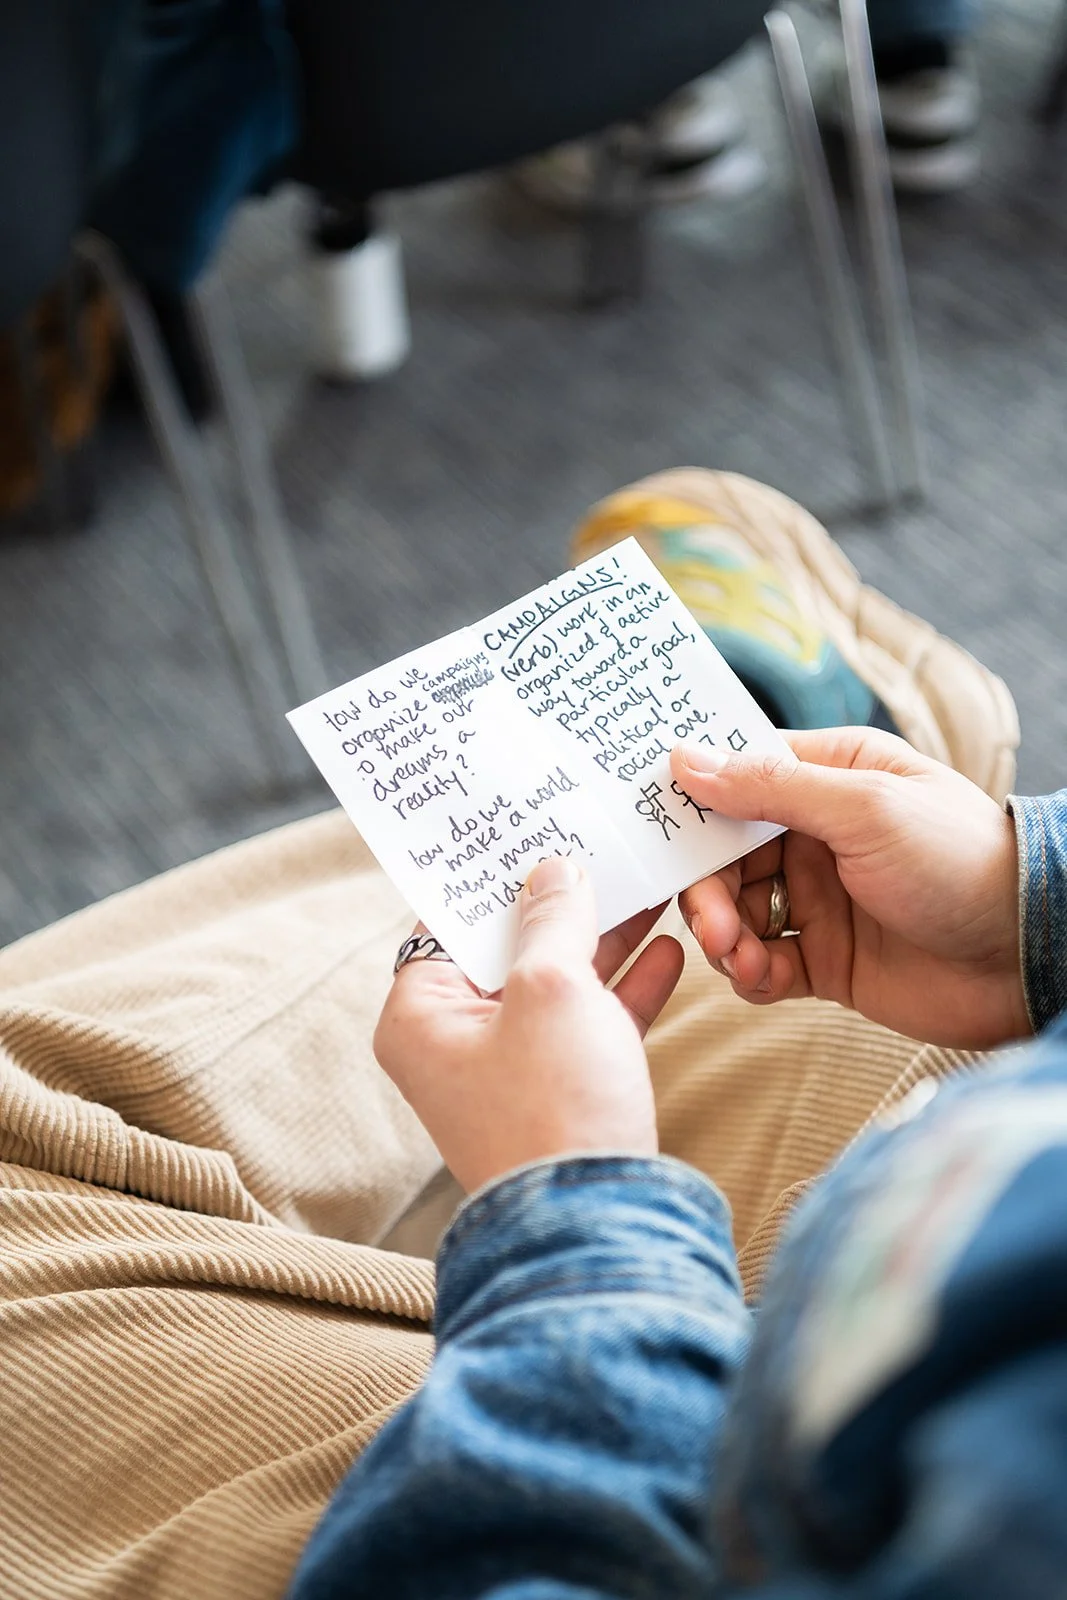 how do we
organize campaigns
to make our
dreams a
reality?
how do we
make a world
where many
worlds
CAMPAIGNS!
(verb) work in an
organized & active
way toward a
particular goal,
typically a
political or
social one.